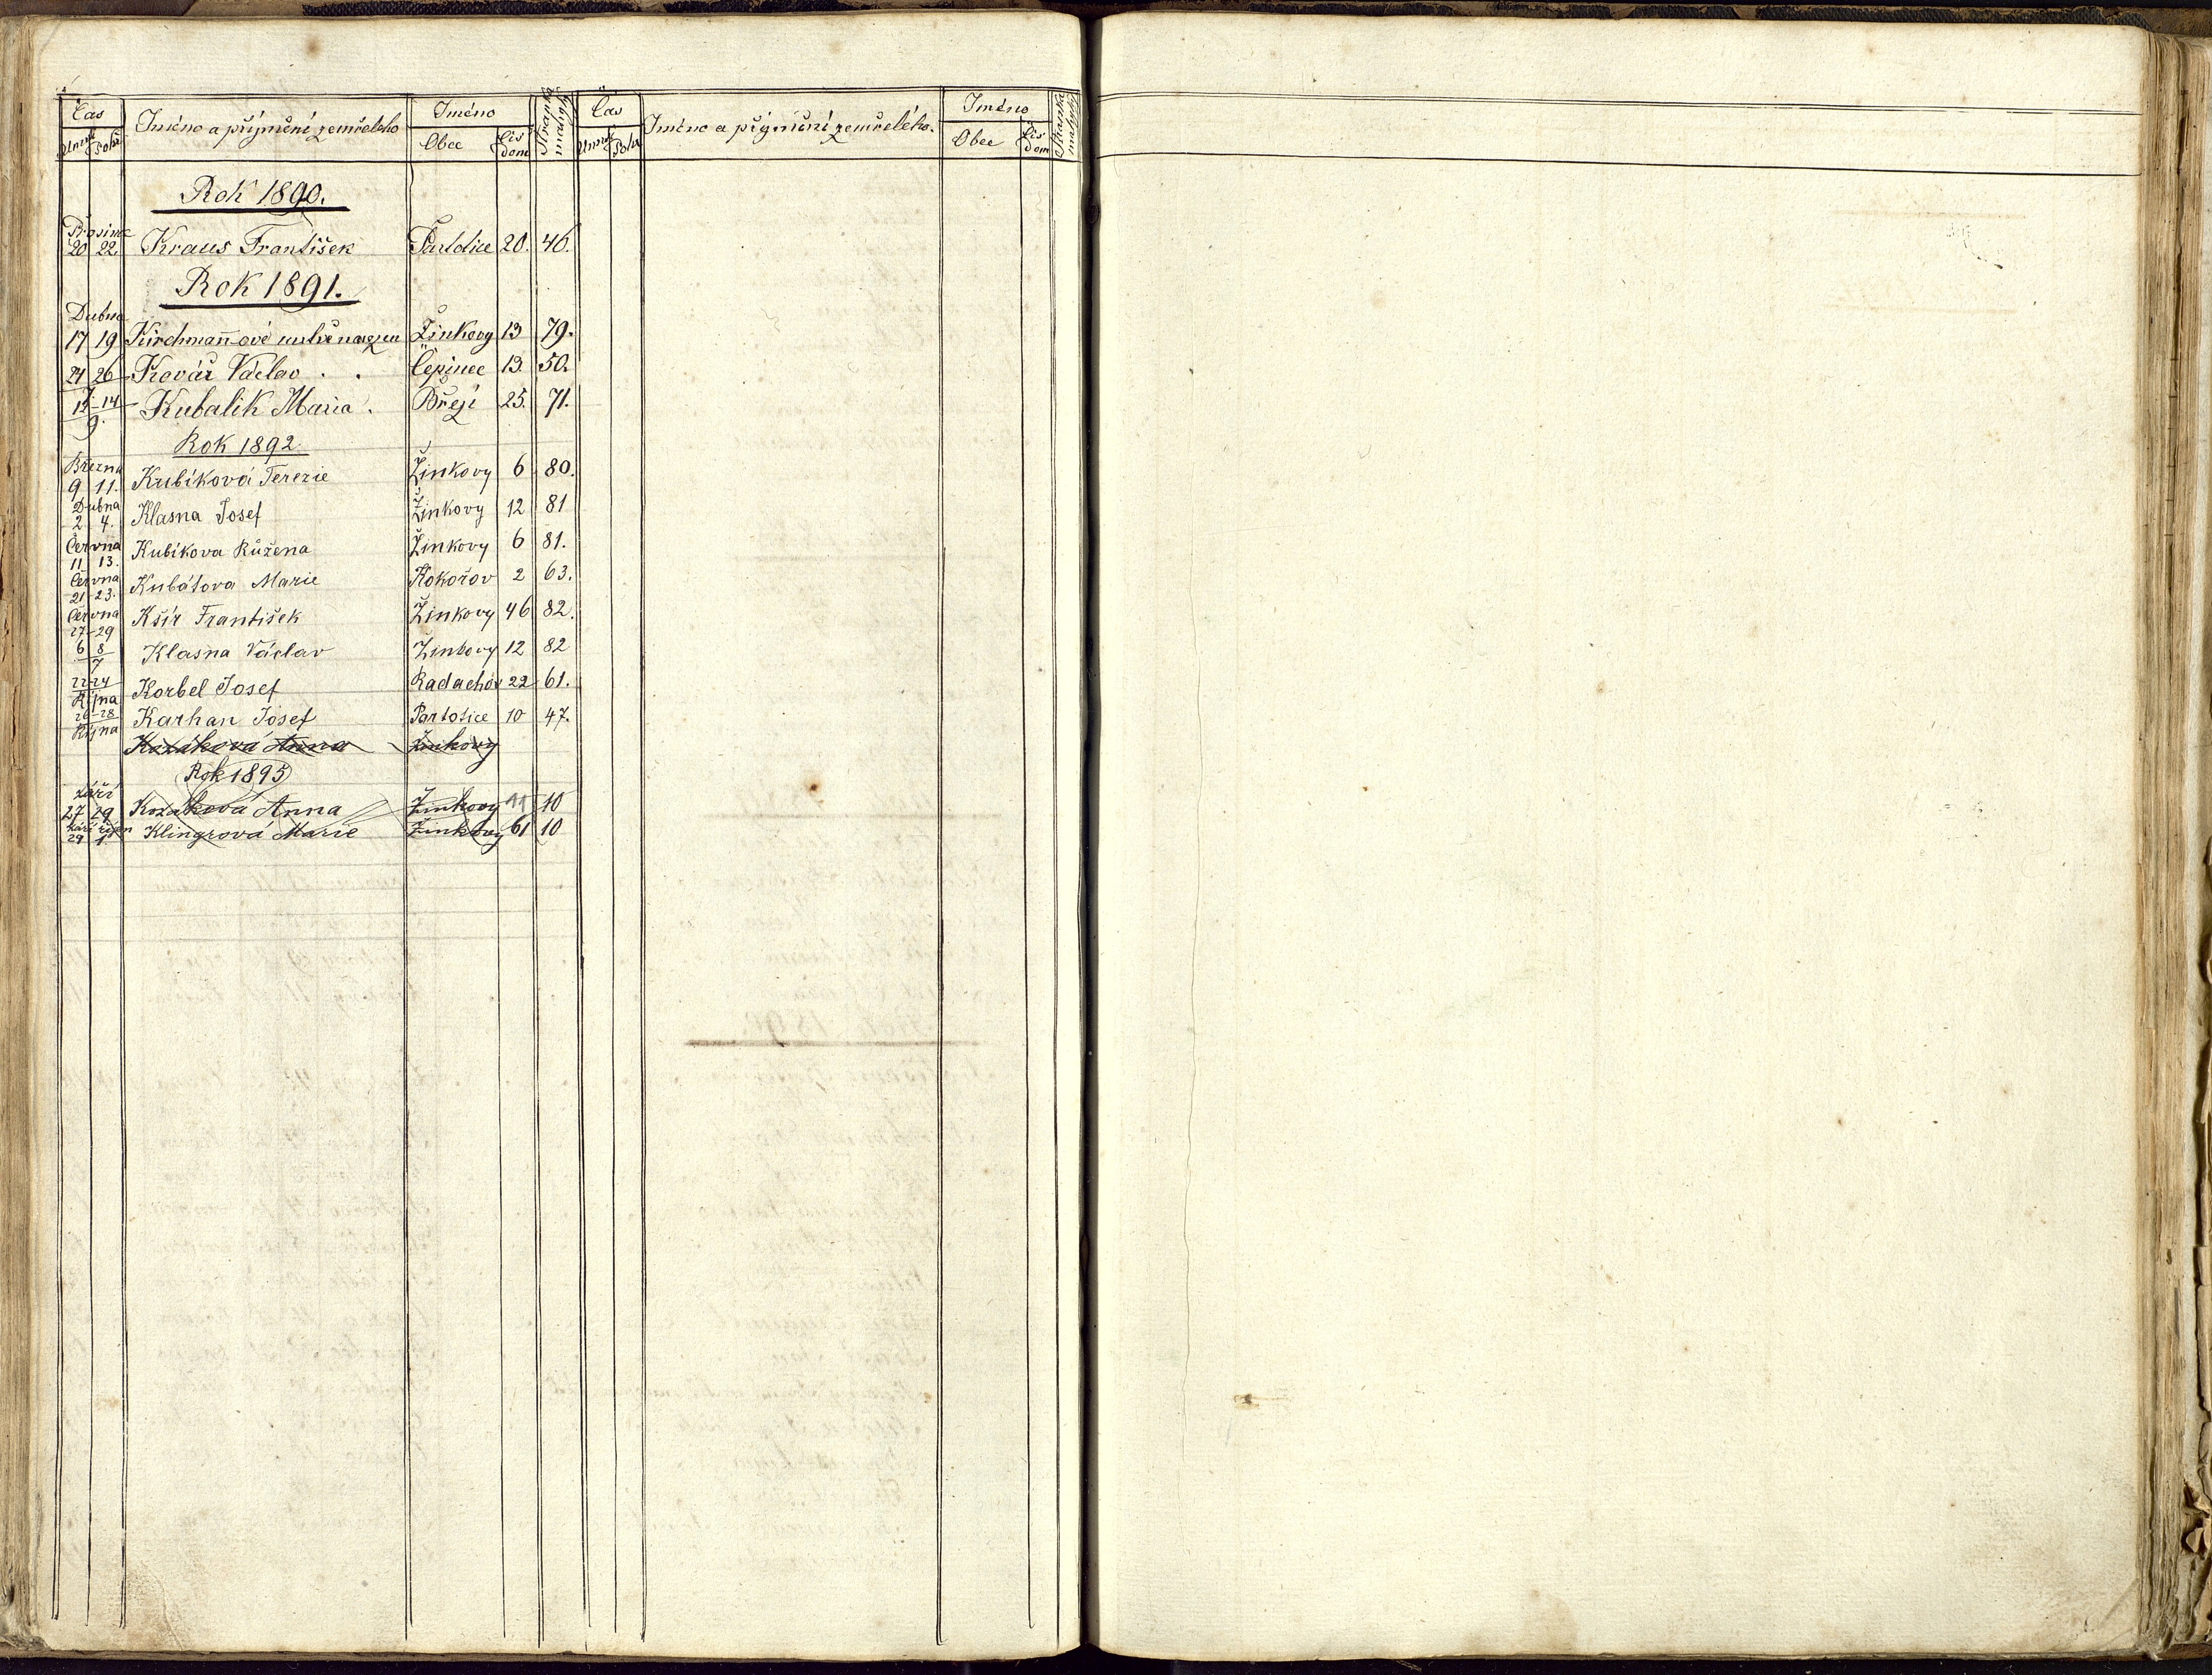 Čas Jméno a příjmění zemřelého Jméno Stránka matriky Čas Jméno a přijmění zemřelého. Jméno Stránka matriky
Úmrtí Pohř. Obec Čís dom Úmrtí Pohř Obec Čís dom
Rok 1890.
Prosince
20 22. Kraus František Partolice 20. 46.
Rok 1891.
Dubna
17 19 Kirchmann-ové mrtvě narozen Žinkovy 13 79.
24 26 Kovář Václav . . Čepinec 13. 50.
12-14 Kubalík Maria . Břeji 25. 71.
9.
Rok 1892.
Března
9 11. Kubíková Terezie Žinkovy 6 80.
Dubna
2 4. Klasna Josef Žinkovy 12 81
Června
11 13. Kubíkova Růžena Žinkovy 6 81.
Června
21-23. Kubátova Marie Kokořov 2 63.
Června
27-29 Kšír František Žinkovy 46 82.
6 8
7 Klasna Václav Žinkovy 12 82
22-24
Října Korbel Josef Radachov 22 61.
26-28
Října Karhan Josef Partotice 10 47.
Kozáková Anna Žinkovy
Rok 1895
září
27 29 Kozáková Anna Žinkovy 10
září říjen
29 1 Klingrová Marie Žinkovy 61 10